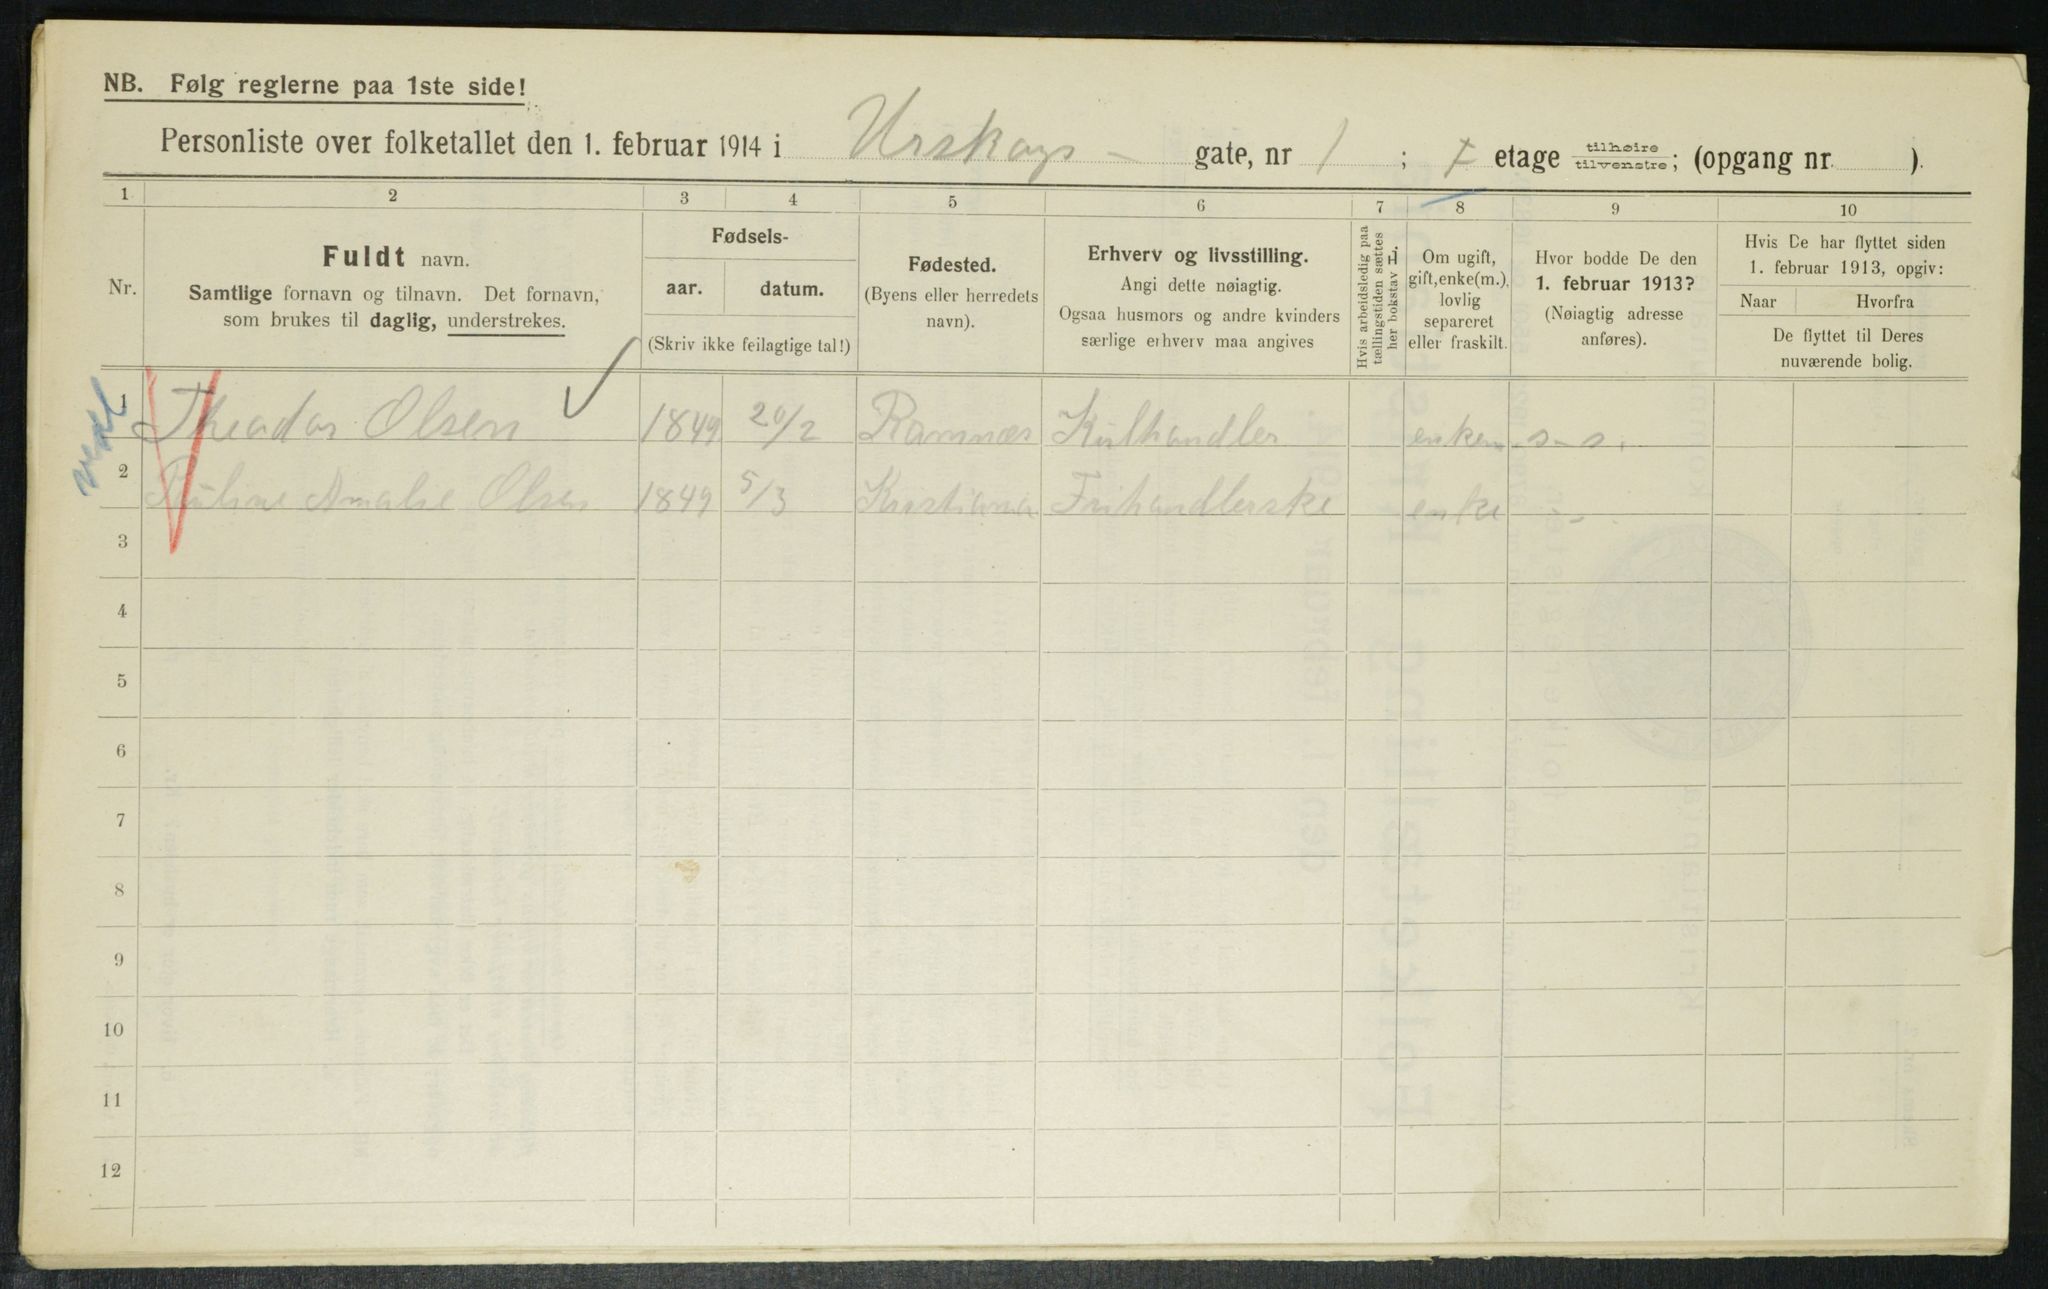 NB. Følg reglerne paa 1ste side!
Personliste over folketallet den 1. februar 1914 i Urskogs - gate, nr 1 ; 1 etage tilhøire tilvenstre; (opgang nr. ).
1 2 3 4 5 6 7 8 9 10
Nr.
Fuldt navn.
Samtlige fornavn og tilnavn. Det fornavn,
som brukes til daglig, understrekes.
Fødsels-
aar. datum.
(Skriv ikke feilagtige tal!)
Fødested.
(Byens eller herredets
navn).
Erhverv og livsstilling.
Angi dette nøiagtig.
Ogsaa husmors og andre kvinders
særlige erhverv maa angives
Hvis arbeidsledig paa
tællingstiden sættes
her bokstav L.
Om ugift,
gift, enke(m.),
lovlig
separeret
eller fraskilt.
Hvor bodde De den
1. februar 1913?
(Nøiagtig adresse
anføres).
Hvis De har flyttet siden
1. februar 1913, opgiv:
Naar Hvorfra
De flyttet til Deres
nuværende bolig.
1 Theodor Olsen 1849 20/2 Ramnæs Kulhandler enkem. s-s.
2 Pauline Amalie Olsen 1849 5/3 Kristiania Frihandlerske enke -
3
4
5
6
7
8
9
10
11
12